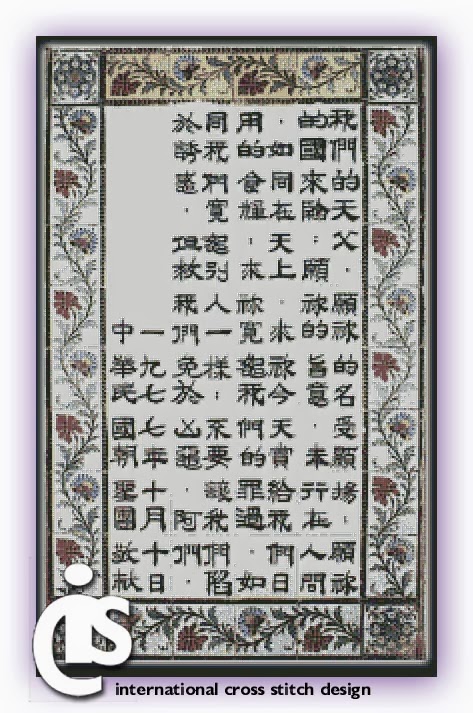 我們的天父．願祢的名受顯揚．願祢
的國來臨．願祢的旨意．奉行在人間
．如同在天上．求祢今天賞給我們日
用的食糧．求祢寬恕我們的罪過．如
同我們寬恕別人一樣．不要讓我們陷
於誘惑．但救我們免於凶惡．阿們．
一九七七年十月十日
中華民國朝聖團敬獻
ics
international cross stitch design